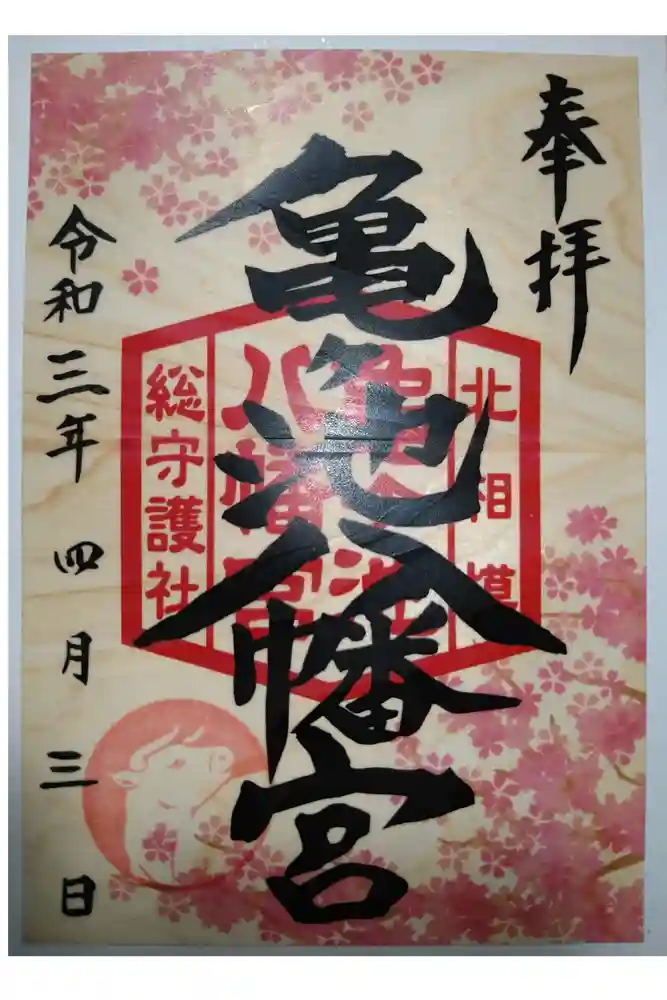 奉拝
亀池八幡宮
北相模
亀池
八幡宮
総守護社
令和三年四月三日